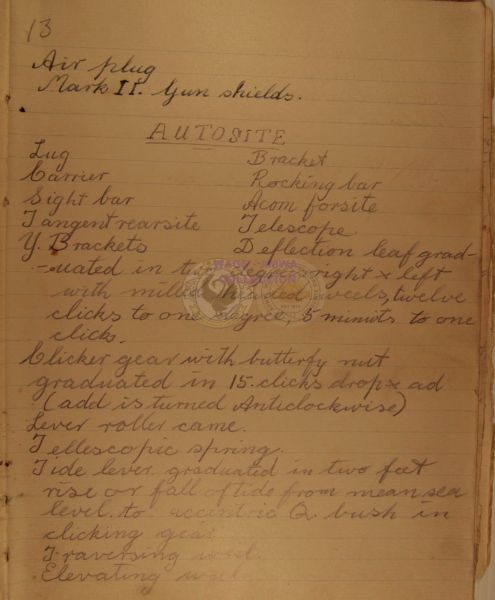 13
Air plug
Mark II. Gun shields.
AUTOSITE
Lug Bracket
Carrier Rocking bar
Sight bar Acorn forsite
Tangent rearsite Telescope
Y. Brackets Deflection leaf grad-
-uated in two degees right & left
with milled headed weels, twelve
clicks to one degree, 5 minuits to one
click.
Clicker gear with butterfy nut
graduated in 15. clicks drop & ad
(add is turned Anticlockwise)
Lever roller came.
Tellescopic spring.
Tide lever. graduated in two feet
rise or fall of tide from mean sea
level. to accentric Q. bush in
clicking gear
Traversing weel.
Elevating weel